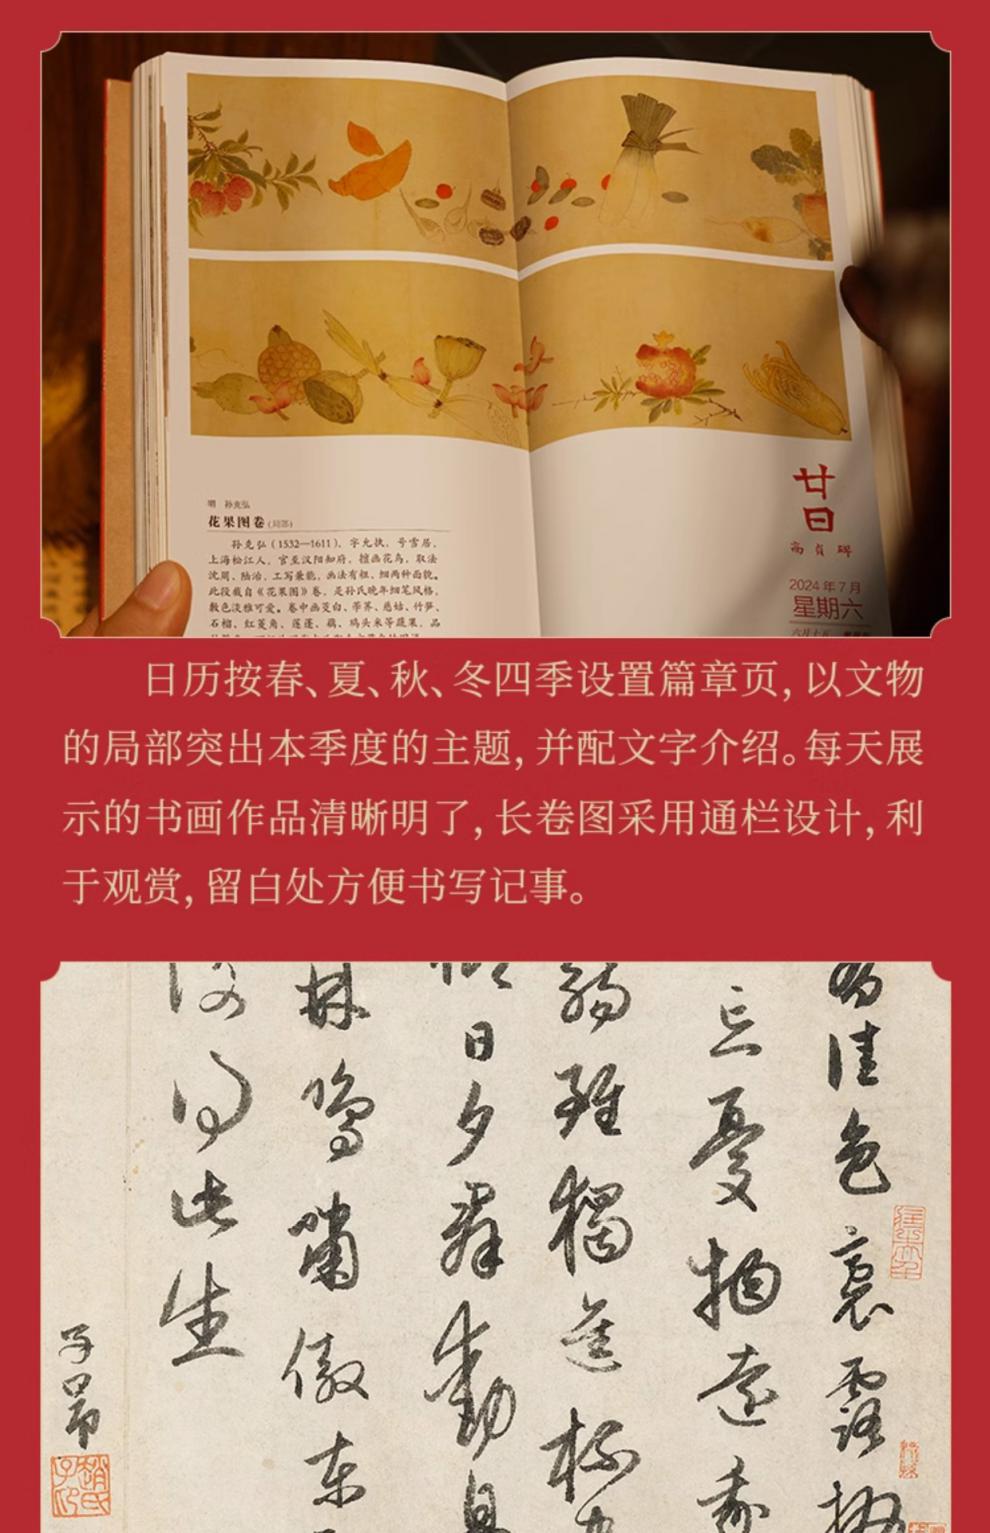 明 孙克弘
花果图卷(局部)
孙克弘(1532—1611),字允执,号雪居,
上海松江人,官至汉阳知府,擅画花鸟,取法
沈周、陆治,工写兼能,画法有粗、细两种面貌。
此段截自《花果图》卷,是孙氏晚年细笔风格,
敷色淡雅可爱。卷中画茭白、荸荠、慈姑、竹笋、
石榴、红菱角、莲蓬、藕、鸡头米等蔬果,品
廿
日
2024年7月
星期六
日历按春、夏、秋、冬四季设置篇章页,以文物
的局部突出本季度的主题,并配文字介绍。每天展
示的书画作品清晰明了,长卷图采用通栏设计,利
于观赏,留白处方便书写记事。
有佳色裛露掇
忘憂物遠我
觴雖獨進杯
日夕群動息
林鳥嘯傲東
得此生
子昂